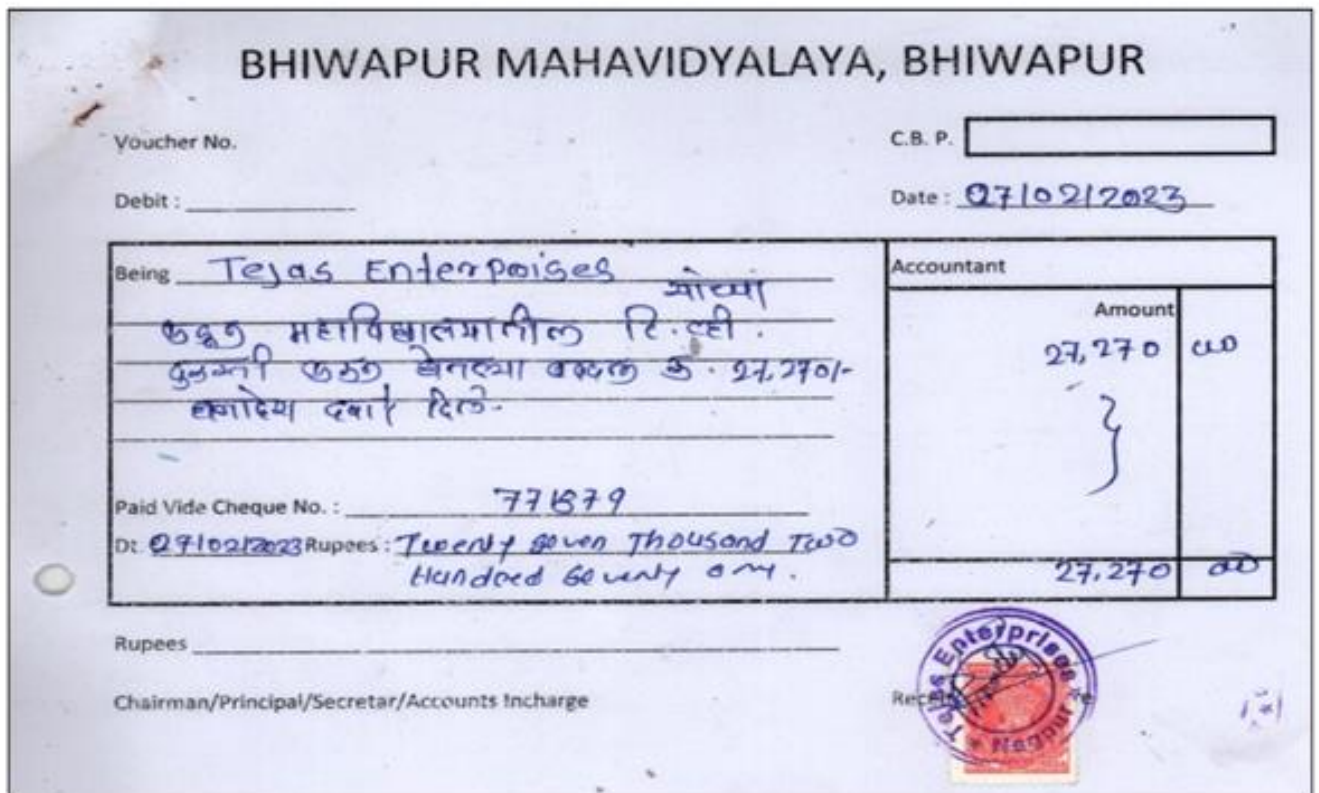 BHIWAPUR MAHAVIDYALAYA, BHIWAPUR
Voucher No.
C.B. P.
Debit :
Date : 07/02/2023
Being Tejas Enterprises यांच्या
कडून महाविद्यालयातील टि.व्ही.
दुरुस्ती करून घेतल्या बद्दल रु. 27,270/-
धनादेश द्वारे दिले.
Accountant
Amount
27,270 00
Paid Vide Cheque No. :
Dt. 07/02/2023 Rupees : Twenty Seven Thousand Two
Hundred Seventy only.
27,270 00
Rupees
Chairman/Principal/Secretar/Accounts Incharge
Tejas Enterprises
Nagpur